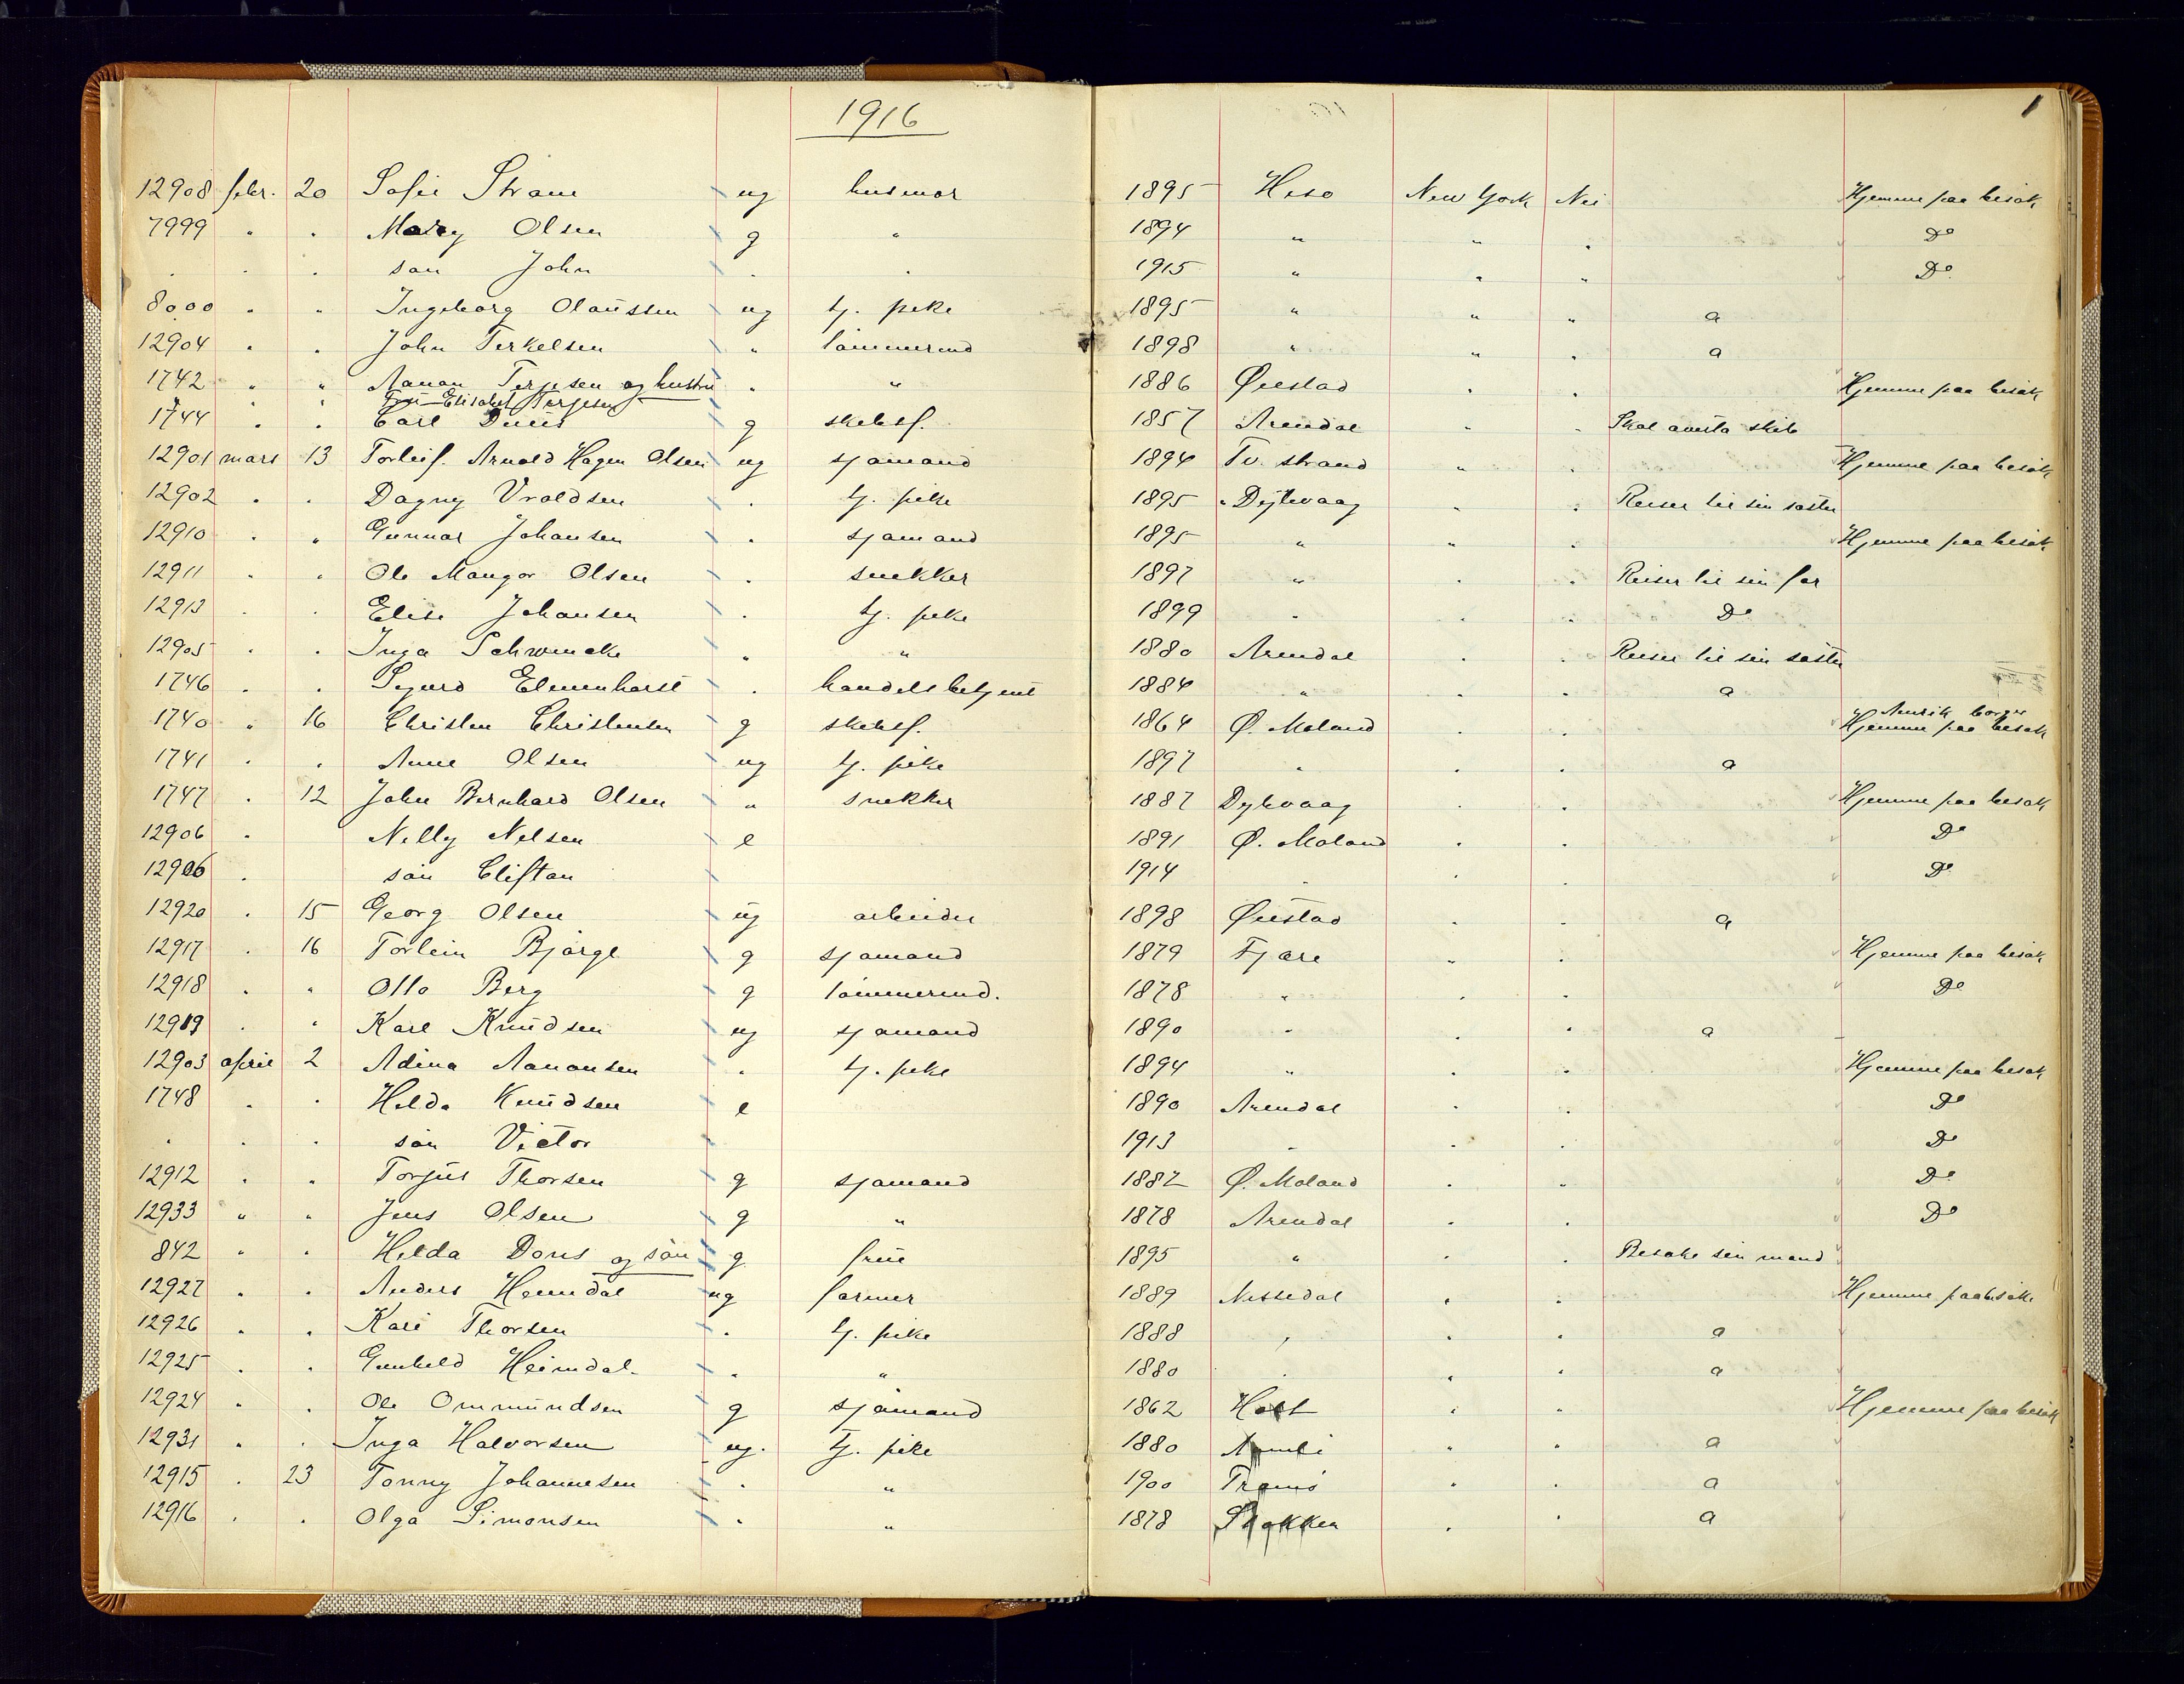 1916
1
12908 febr. 20 Sofie Strøm ug husmor 1895 Hisø New York Nei Hjemme paa besøk
7999 " " Mary Olsen g " 1894 " " " Do
. . . søn John . . 1915 " " " Do
8000 " " Ingeborg Olaussen ug tj. pike 1895 " " " a
12904 " " John Terkelsen " tømmermd 1898 " " " a
1742 " " Aanon Terjesen og hustru " " 1886 Øiestad " " Hjemme paa besøk
" " Fru Elisabet Terjesen
1744 " " Carl Duus g skibsf. 1857 Arendal " " Skal avista skib
12901 mars 13 Torleif. Arnold Hagen Olsen ug sjømand 1894 Tv. strand " " Hjemme paa besøk
12902 " " Dagny Vraldsen " tj. pike 1895 " Dybvaag " " Reiser til sin søster
12910 " " Gunnar Johansen " sjømand 1895 " " " Hjemme paa besøk
12911 " " Ole Mangor Olsen " snekker 1897 " " " Reiser til sin far
12913 " " Elise Johansen " tj. pike 1899 " " " Do
12905 " " Inga Schwencke " " 1880 Arendal " " Reiser til sin søster
1746 " " Sigurd Elmenhorst " handelsbetjent 1884 " " " a
1740 " 16 Christen Christensen g skibsf. 1864 Ø. Moland " " Amrik borger Hjemme paa besøk
1741 " " Anne Olsen ug tj. pike 1897 " " " a
1747 " 12 John Bernhard Olsen " snekker 1887 Dybvaag " " Hjemme paa besøk
12906 " Nelly Nelsen e 1891 Ø. Moland " " Do
12906 " søn Cliftan 1914 " " " Do
12920 " 15 Georg Olsen ug arbeider 1898 Øiestad " " a
12917 " 16 Torlein Bjørge g sjømand 1879 Fjære " " Hjemme paa besøk
12918 " " Otto Berg g tømmermd. 1878 " " " Do
12919 " " Karl Knudsen ug sjømand 1890 " " " a
12903 april 2 Adina Aanonsen " tj. pike 1894 " " " Hjemme paa besøk
1748 " " Hilda Knudsen e 1890 Arendal " " Do
" " " søn Victor 1913 " " " Do
12912 " " Torjus Thorsen g sjømand 1882 Ø. Moland " " Do
12933 " " Jens Olsen g " 1878 Arendal " " Do
842 " " Hilda Dons og søn g frue 1895 " " " Besøke sin mand
12927 " " Anders Heimdal ug farmer 1889 Nissedal " " Hjemme paa besøk
12926 " " Kari Thorsen " tj. pike 1888 " " " a
12925 " " Gunhild Heimdal " " 1880 " " " a
12924 " " Ole Ommundsen g sjømand 1862 Holt " " Hjemme paa besøk
12931 " " Inga Halvorsen ug. tj. pike 1880 Aamli " " a
12915 " 23 Tonny Johannesen " " 1900 Tromø " " a
12916 " " Olga Simonsen " " 1878 Stokken " " a